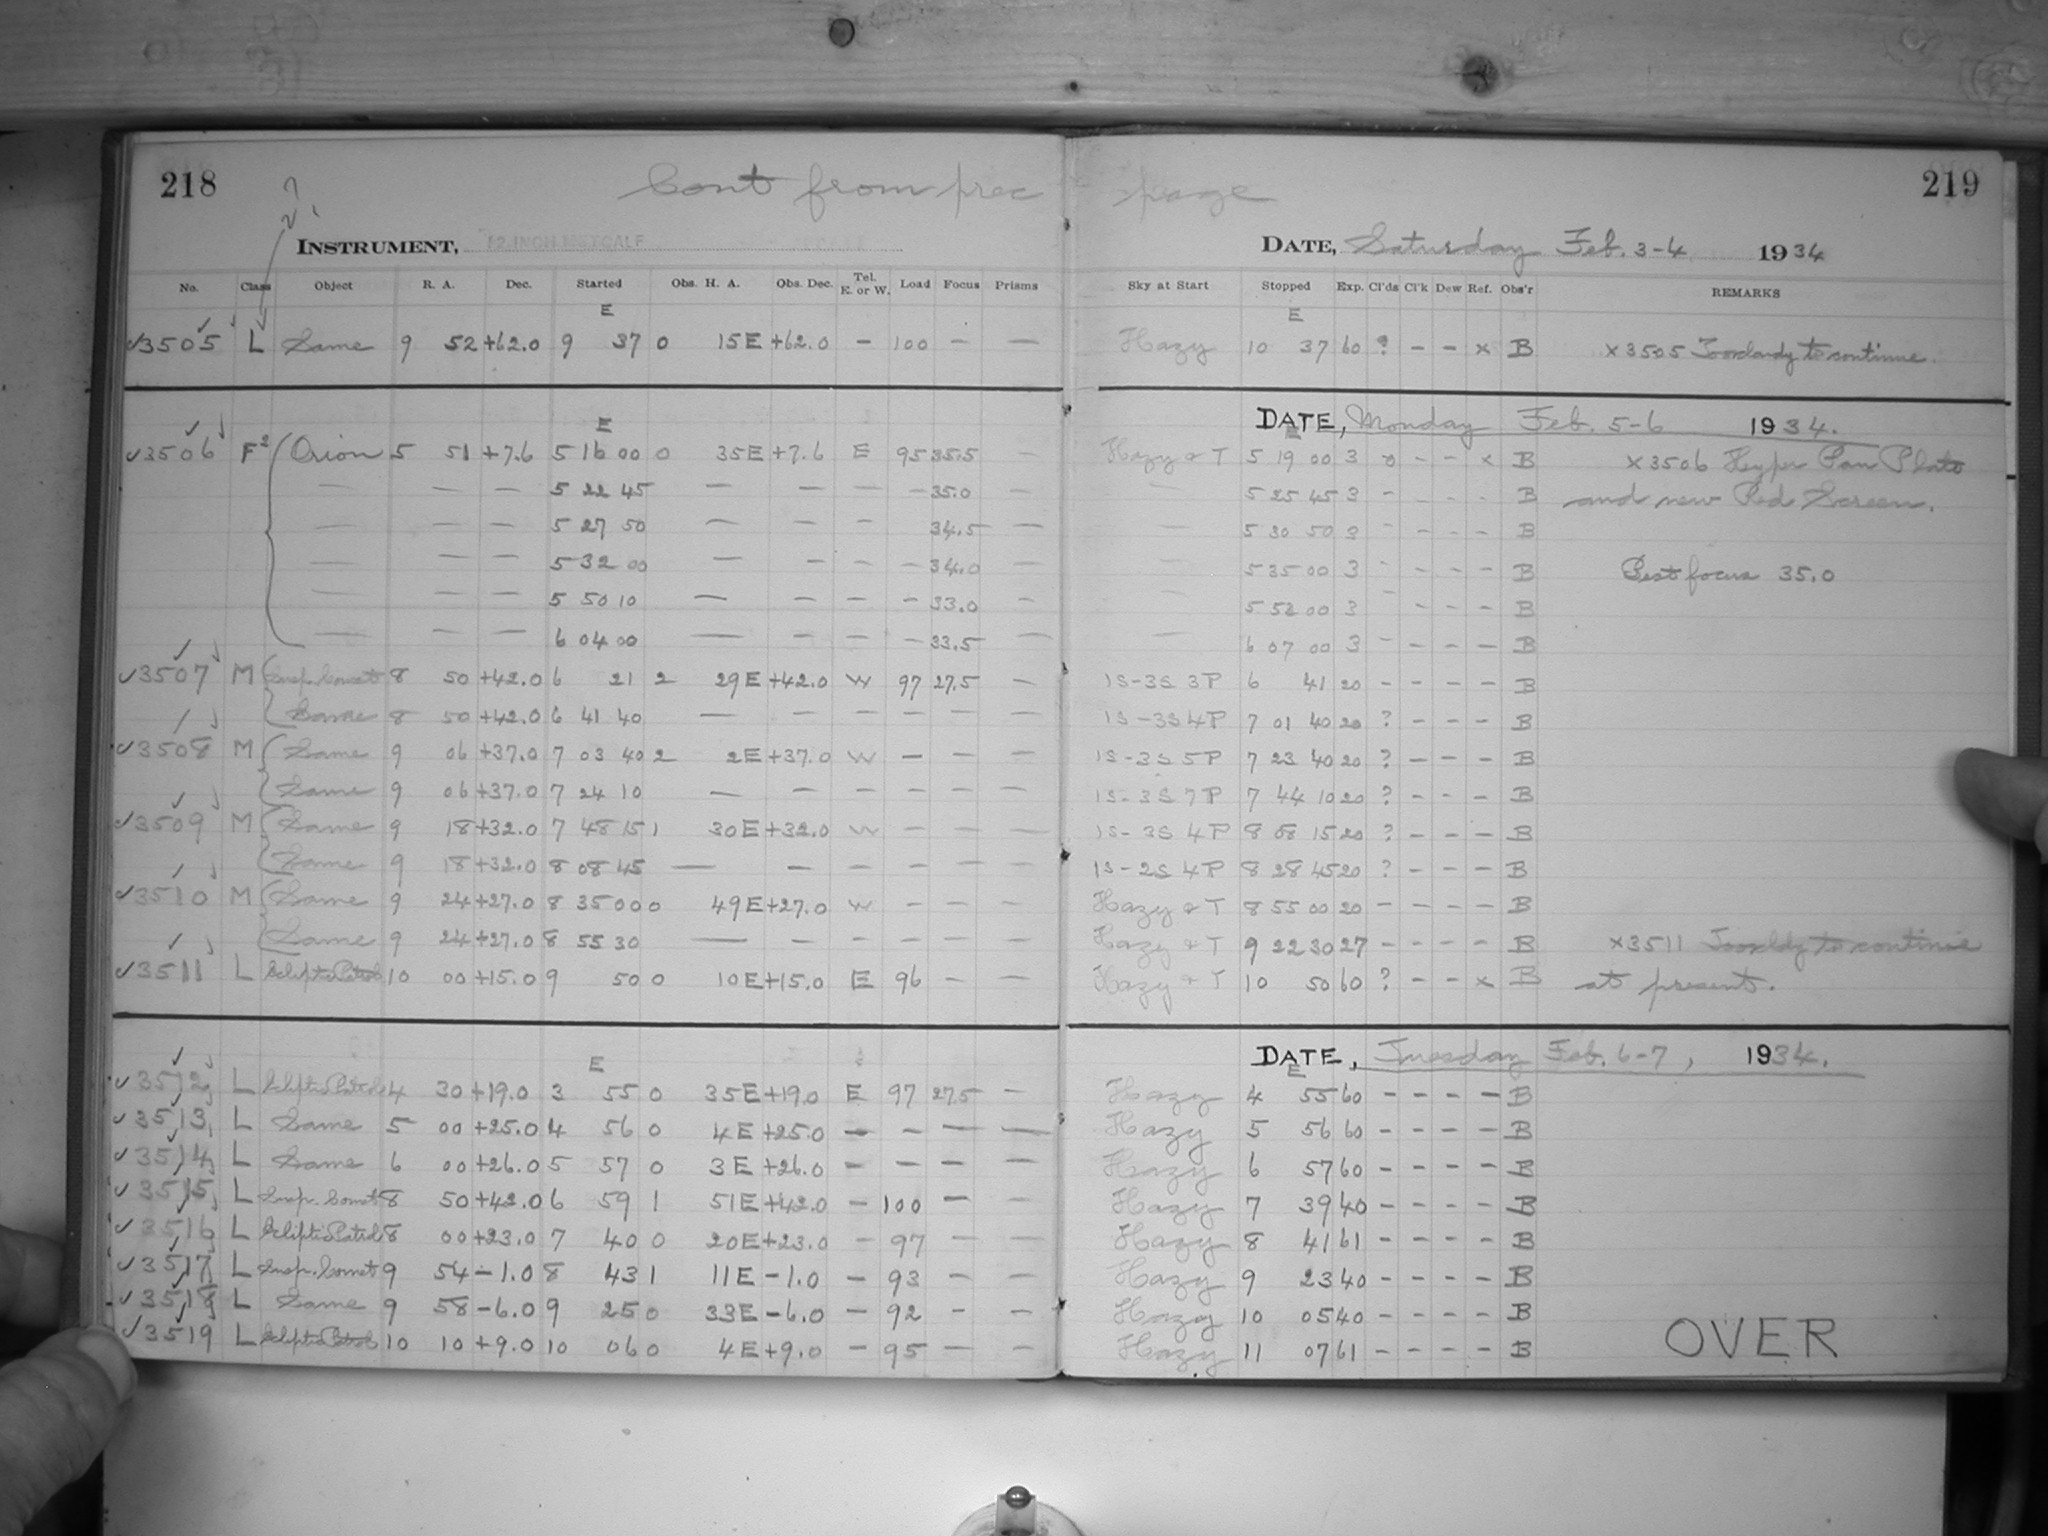 218 Cont from prec page 219
INSTRUMENT, 12 INCH METCALF DATE, Saturday Feb. 3-4 1934
No. Class Object R. A. Dec. Started Obs. H. A. Obs. Dec. Tel. E. or W. Load Focus Prisms Sky at Start Stopped Exp. Cl'ds Cl'k Dew Ref. Obs'r REMARKS
E E
✓3505 L Same 9 52 +62.0 9 37 0 15E +62.0 - 100 - - Hazy 10 37 60 ? - - x B x3505 to continue.
DATE, Monday Feb. 5-6 1934.
E E
✓3506 F² Orion 5 51 +7.6 5 16 00 0 35E +7.6 E 95 35.5 - Hazy & T 5 19 00 3 0 - - x B x3506 Hyper Pan Plate
— — — 5 22 45 — — — - 35.0 — — 5 25 45 3 - - - - B and new Red Screen.
— — — 5 27 50 — — - - 34.5 — — 5 30 50 3 - - - - B
— — — 5 32 00 — - - - 34.0 — — 5 35 00 3 - - - - B Best focus 35.0
— — — 5 50 10 — — — - 33.0 - — 5 52 00 3 - - - - B
— — — 6 04 00 — — — - 33.5 — — 6 07 00 3 - - - - B
✓3507 M Insp. Comet 8 50 +42.0 6 21 2 29E +42.0 W 97 27.5 — 1S-3S 3P 6 41 20 - - - - B
Same 8 50 +42.0 6 41 40 — — — — — — 1S-3S 4P 7 01 40 20 ? - - - B
✓3508 M Same 9 06 +37.0 7 03 40 2 2E +37.0 W — — — 1S-3S 5P 7 23 40 20 ? - - - B
Same 9 06 +37.0 7 24 10 — — — — — — 1S-3S 7P 7 44 10 20 ? - - - B
✓3509 M Same 9 18 +32.0 7 48 15 1 30E +32.0 W — — — 1S-3S 4P 8 08 15 20 ? - - - B
Same 9 18 +32.0 8 08 45 — — — — — — 1S-2S 4P 8 28 45 20 ? - - - B
✓3510 M Same 9 24 +27.0 8 35 00 0 49E +27.0 W - - - Hazy & T 8 55 00 20 - - - - B
Same 9 24 +27.0 8 55 30 — — — — — — Hazy & T 9 22 30 27 - - - - B x3511 to continue
✓3511 L Ecliptic Patrol 10 00 +15.0 9 50 0 10E +15.0 E 96 - - Hazy & T 10 50 60 ? - - x B at present.
DATE, Tuesday Feb. 6-7, 1934.
E E
✓3512 L Ecliptic Patrol 4 30 +19.0 3 55 0 35E +19.0 E 97 27.5 — Hazy 4 55 60 - - - - B
✓3513 L Same 5 00 +25.0 4 56 0 4E +25.0 — — — — Hazy 5 56 60 - - - - B
✓3514 L Same 6 00 +26.0 5 57 0 3E +26.0 - - - - Hazy 6 57 60 - - - - B
✓3515 L Insp. Comet 8 50 +42.0 6 59 1 51E +42.0 - 100 - - Hazy 7 39 40 - - - - B
✓3516 L Ecliptic Patrol 8 00 +23.0 7 40 0 20E +23.0 - 97 — — Hazy 8 41 61 - - - - B
✓3517 L Insp. Comet 9 54 -1.0 8 43 1 11E -1.0 - 93 - - Hazy 9 23 40 - - - - B
✓3518 L Same 9 58 -6.0 9 25 0 33E -6.0 - 92 - - Hazy 10 05 40 - - - - B
✓3519 L Ecliptic Patrol 10 10 +9.0 10 06 0 4E +9.0 - 95 - - Hazy 11 07 61 - - - - B
OVER